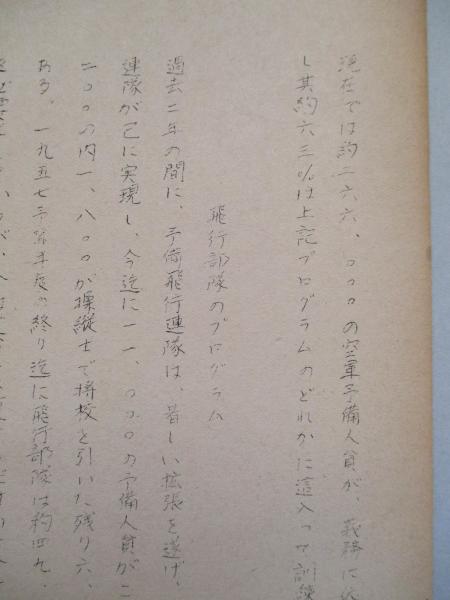 現在では約二六六、〇〇〇の空軍予備人員が、義務に
し其約六三%は上記プログラムのどれかに這入つて訓練
飛行部隊のプログラム
過去二年の間に、予備飛行連隊は、著しい拡張を遂げ、
連隊が已に実現し、今迄に一一、〇〇〇の予備人員がこ
二〇〇の内一、八〇〇が操縦士で将校を引いた残り六、
ある。一九五七予算年度の終り迄に飛行部隊は約四九、